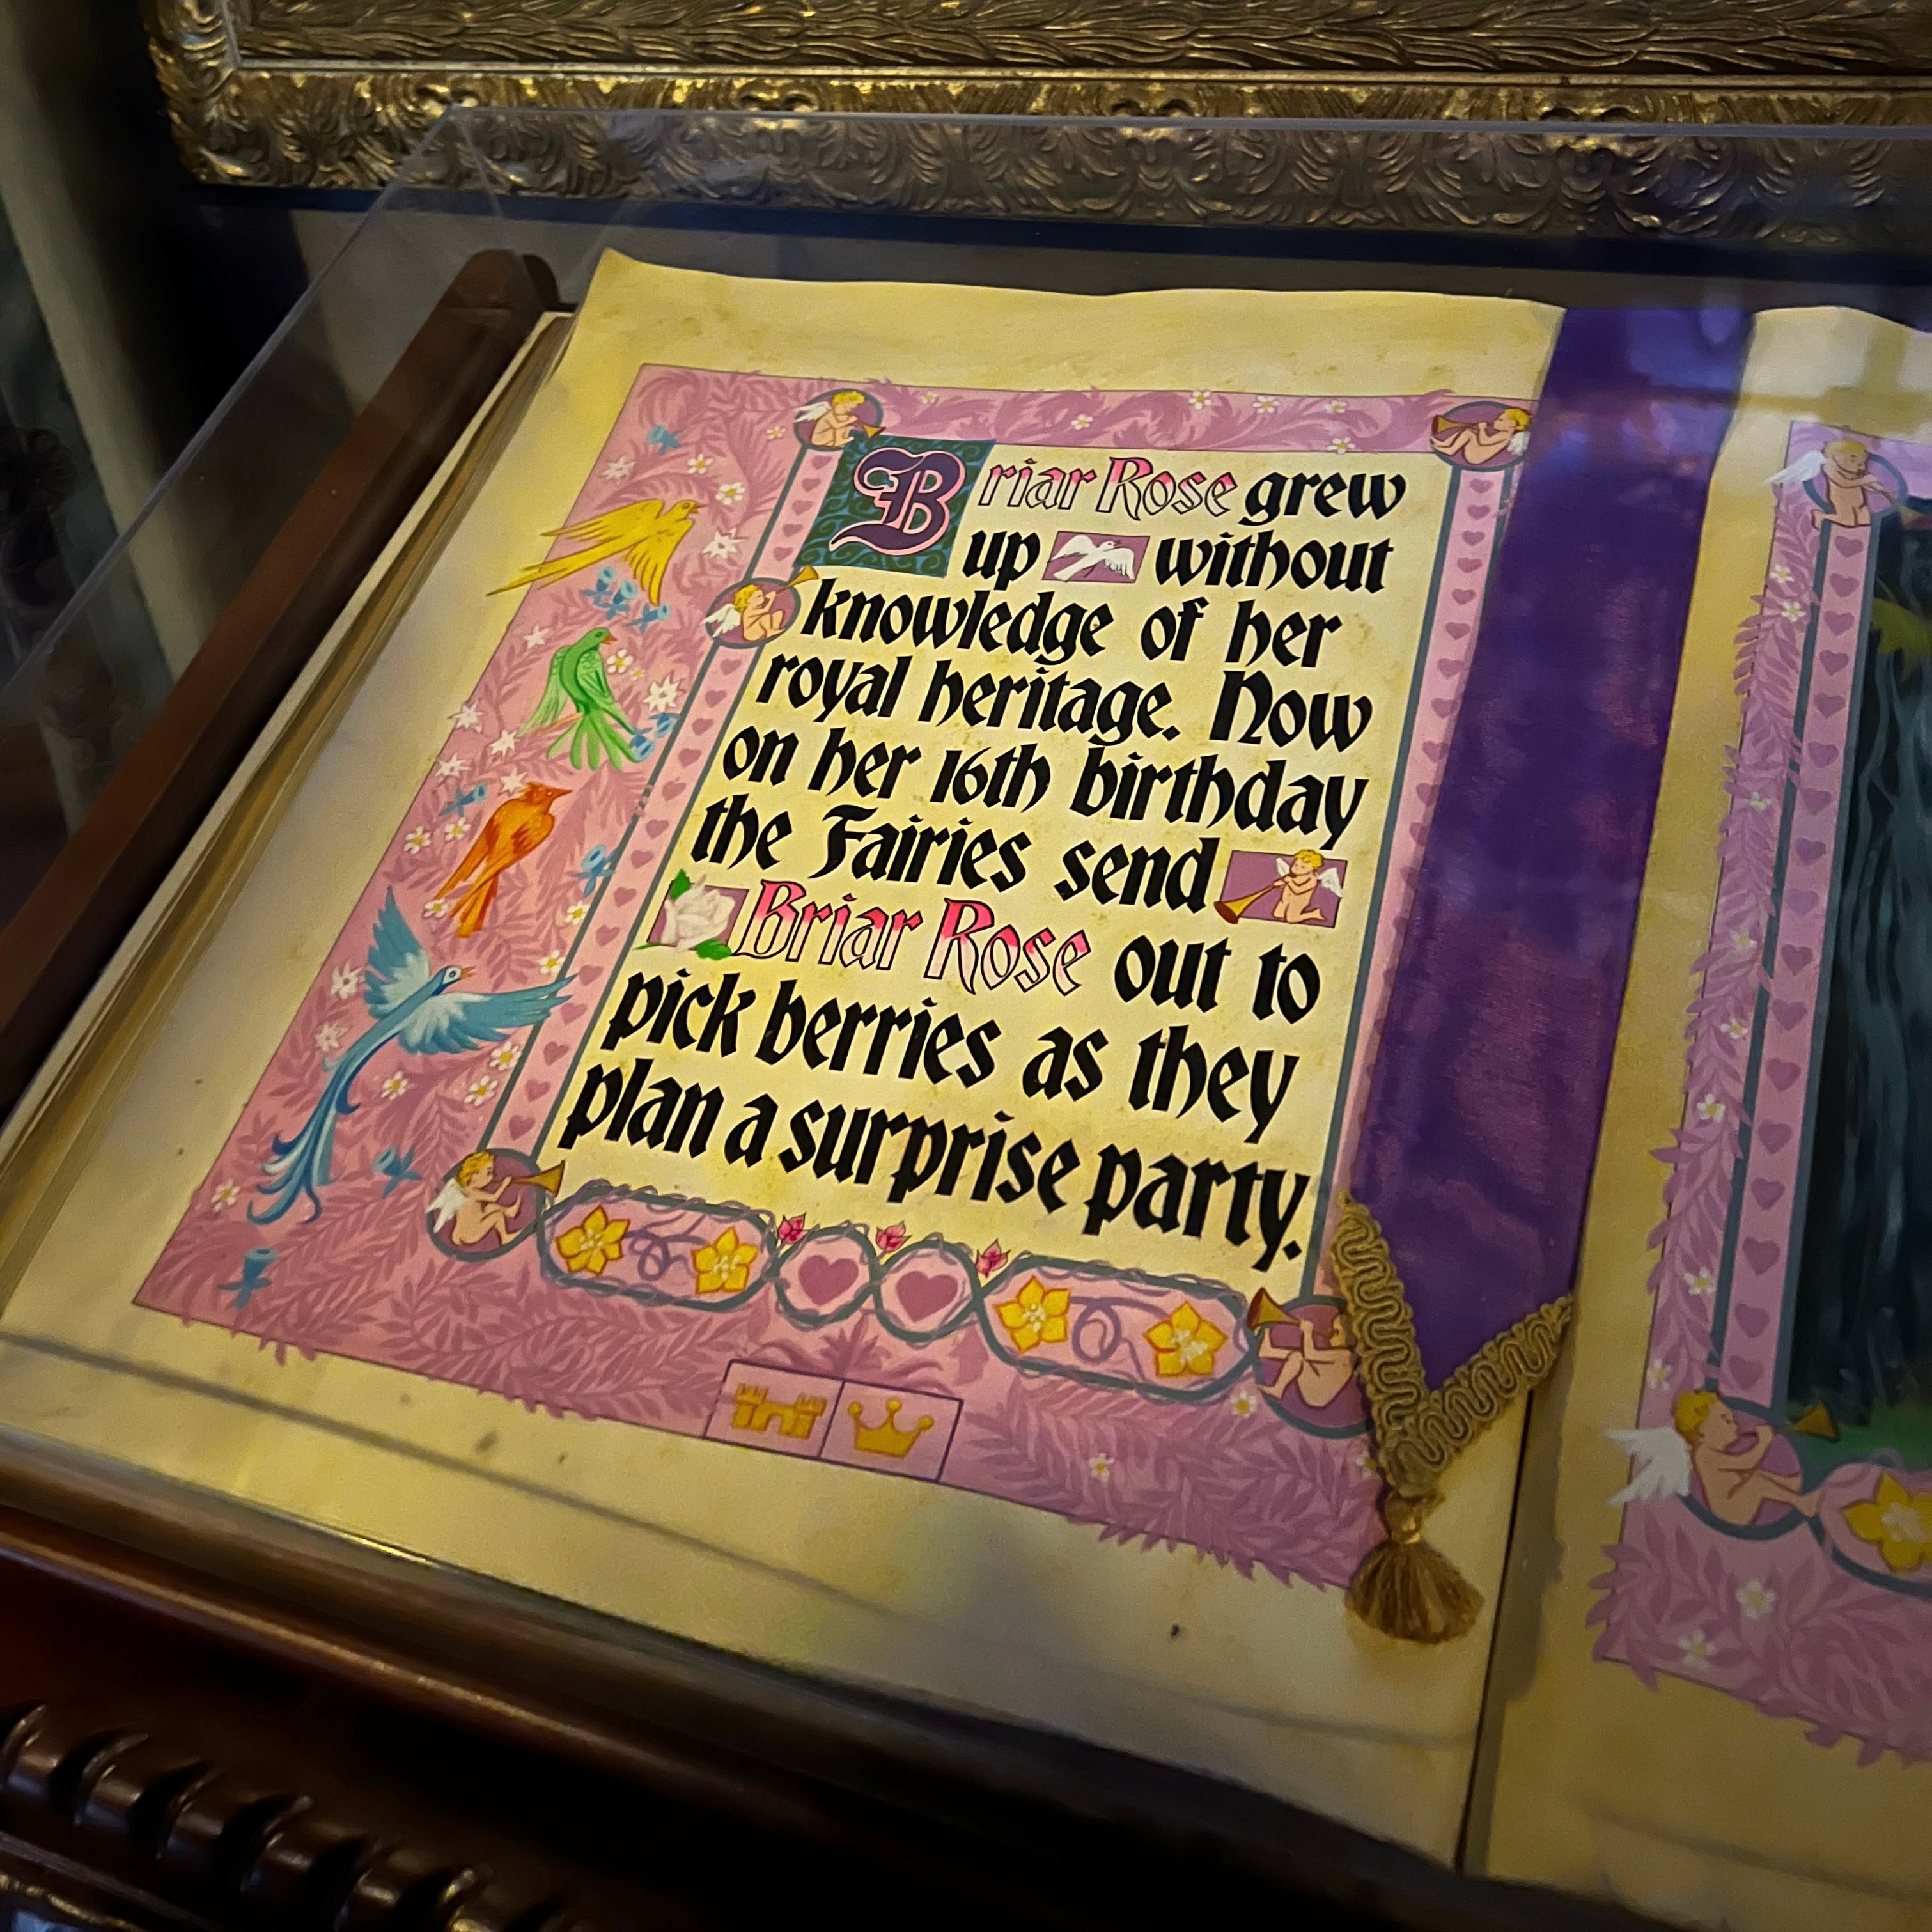 Briar Rose grew
up without
knowledge of her
royal heritage. Now
on her 16th birthday
the Fairies send
Briar Rose out to
pick berries as they
plan a surprise party.